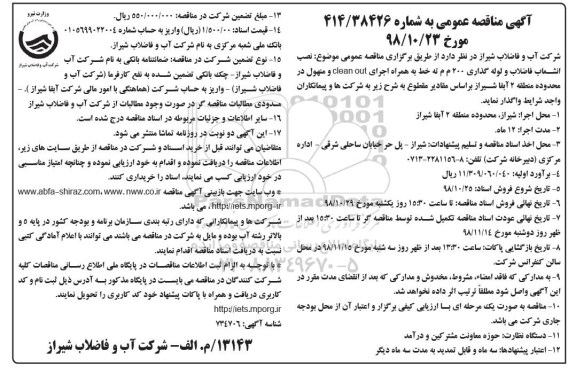 آگهی مناقصه عمومی به شماره ۴۱۴/۳۸۴۲۶
مورخ ۹۸/۱۰/۲۳
شرکت آب و فاضلاب شیراز در نظر دارد از طریق برگزاری مناقصه عمومی موضوع: نصب
انشعاب فاضلاب و لوله گذاری ۲۰۰ م م به خط به همراه اجرای clean out و منهول در
محدوده منطقه ۲ آبفا شیراز براساس مقادیر مقطوع به شرح زیر به شرکت ها و پیمانکاران
واجد شرایط واگذار نماید.
۱- محل اجرا: شیراز، محدوده منطقه ۲ آبفا شیراز
۲- مدت اجرا: ۱۲ ماه.
۳- محل اخذ اسناد مناقصه و تسلیم پیشنهادات: شیراز - پل حر خیابان ساحلی شرقی - اداره
مرکزی (دبیرخانه شرکت) تلفن: ۸-۰۷۱۳-۲۲۸۱۱۵۶
۴- برآورد اولیه: ۱۱/۳۰۹/۰۶۰/۰۴۰ ریال.
۵- تاریخ شروع فروش اسناد: ۹۸/۱۰/۲۵
۶- تاریخ نهائی فروش اسناد مناقصه: تا ساعت ۱۵:۳۰ روز یکشنبه مورخ ۹۸/۱۰/۲۹
۷- تاریخ نهائی عودت اسناد مناقصه تکمیل شده توسط مناقصه گر تا ساعت ۱۵:۳۰ بعد از
ظهر روز دوشنبه مورخ ۹۸/۱۱/۱۴
۸- تاریخ بازگشایی پاکات: ساعت ۱۳:۳۰ بعد از ظهر روز سه شنبه مورخ ۹۸/۱۱/۱۵ در محل
سالن کنفرانس شرکت.
۹- به مدارکی که فاقد امضاء، مشروط، مخدوش و مدارکی که بعد از انقضای مدت مقرر در
این آگهی واصل شود مطلقاً ترتیب اثر داده نخواهد شد.
۱۰- مناقصه به صورت یک مرحله ای با ارزیابی کیفی برگزار و اعتبار آن از محل بودجه
جاری شرکت می باشد.
۱۱- دستگاه نظارت: حوزه معاونت مشترکین و درآمد
۱۲- اعتبار پیشنهادها: سه ماه و قابل تمدید به مدت سه ماه دیگر
۱۳- مبلغ تضمین شرکت در مناقصه: ۵۵۰/۰۰۰/۰۰۰ ریال.
۱۴- قیمت اسناد: ۱/۵۰۰/۰۰ (ریال) واریز به حساب شماره ۰۱۰۵۶۹۹۰۲۲۰۰۴
بانک ملی شعبه مرکزی به نام شرکت آب و فاضلاب شیراز.
۱۵- نوع تضمین شرکت در مناقصه: ضمانتنامه بانکی به نام شرکت آب
و فاضلاب شیراز- چک بانکی تضمین شده به نفع کارفرما (شرکت آب و
فاضلاب شیراز) - واریز به حساب شرکت (هماهنگی با امور مالی شرکت آبفا شیراز) . -
مسدودی مطالبات مناقصه گر در صورت وجود مطالبات از شرکت آب و فاضلاب شیراز
۱۶- سایر اطلاعات و جزئیات مربوطه در اسناد مناقصه درج شده است.
۱۷- این آگهی دو نوبت در روزنامه تماشا منتشر می شود.
متقاضیان می توانند قبل از خرید اسناد و شرکت در مناقصه از طریق سایت های زیر،
اطلاعات مناقصه را دریافت نموده و اقدام به خود ارزیابی نموده و چنانچه امتیاز مناسبی
در خود ارزیابی کسب می نمایند، اسناد را خریداری کنند.
* وب سایت جهت بازبینی آگهی مناقصه www.abfa-shiraz.com، www.nww.co.ir
http://iets.mporg-ir می باشد.
شرکت ها و پیمانکارانی که دارای رتبه بندی سازمان برنامه و بودجه کشور در پایه ۵ و
بالاتر رشته آب بوده و مایل به شرکت در مناقصه می باشند می توانند با اعلام آمادگی کتبی
نسبت به دریافت اسناد مناقصه اقدام نمایند.
* با توجه به الزام ثبت اطلاعات مناقصات در پایگاه ملی اطلاع رسانی مناقصات کلیه
شرکت کنندگان در مناقصه می بایست در پایگاه مذکور به آدرس ذیل ثبت نام و کد
کاربری دریافت و همراه با پاکات پیشنهاد خود کد کاربری را تحویل نمایند.
http://iets.mporg.ir
شناسه آگهی: ۷۳۴۷۰۶
۱۳۱۴۳/م. الف- شرکت آب و فاضلاب شیراز
وزارت نیرو